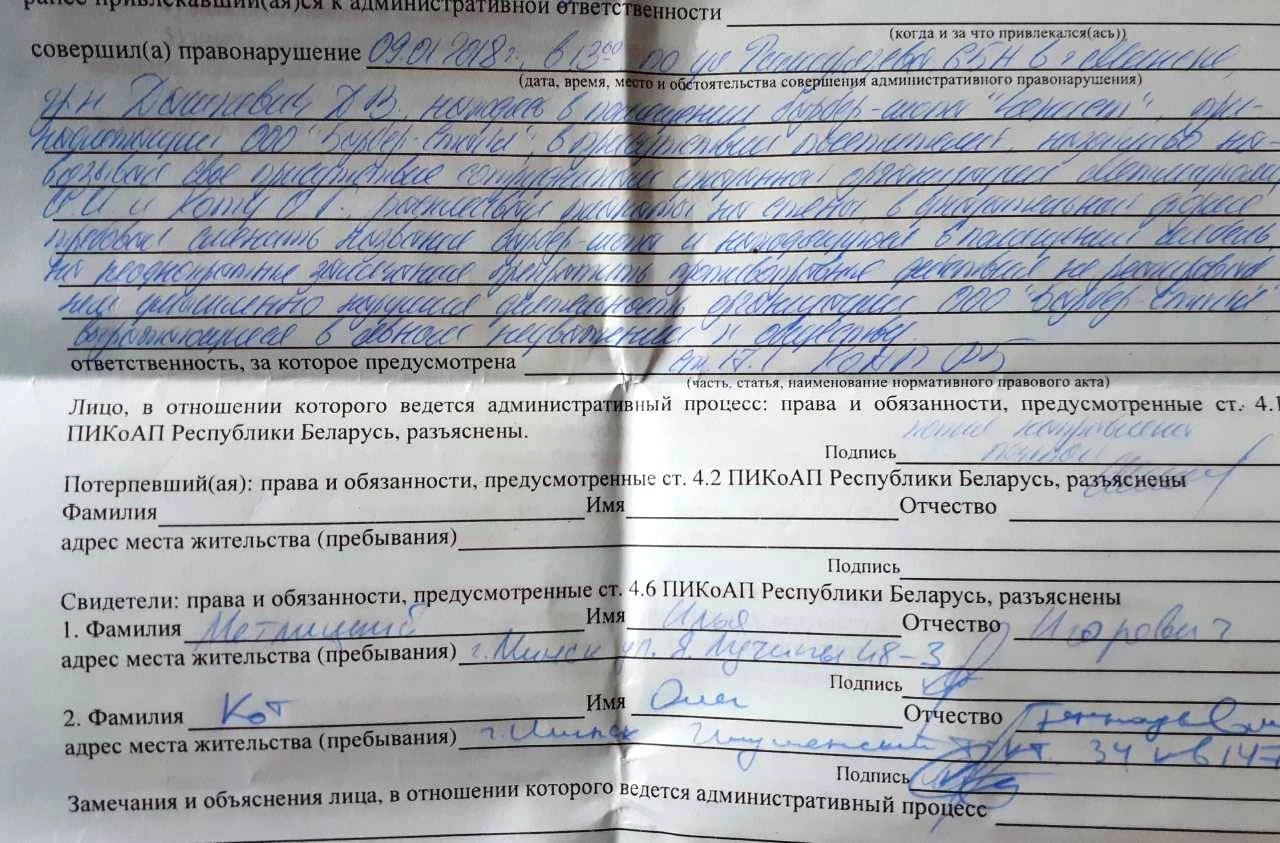 ранее привлекавший(ая)ся к административной ответственности
(когда и за что привлекался(ась))
совершил(а) правонарушение 09.01.2018 г. в 13⁰⁰ по ул. 65Н в г. Минске,
(дата, время, место и обстоятельства совершения административного правонарушения)
гр-н Д.В. находясь в помещении барбер-шопа "Чекист", при-
ООО "Барбер-Стайл", в присутствии посетителей, на-
вязывал свое присутствие сотрудникам организации
О.И и Коту О.Г., на стены, в форме
требовал сменить название барбер-шопа и находящуюся в помещении мебель,
на неоднократные замечания прекратить противоправные действия не реагировал
чем умышленно нарушил деятельность организации ООО "Барбер-Стайл"
в явном неуважении к обществу.
ответственность, за которое предусмотрена ст. 17.1 КоАП РБ
(часть, статья, наименование нормативного правового акта)
Лицо, в отношении которого ведется административный процесс: права и обязанности, предусмотренные ст. 4.1
ПИКоАП Республики Беларусь, разъяснены.
копия направлена
Подпись почтой
Потерпевший(ая): права и обязанности, предусмотренные ст. 4.2 ПИКоАП Республики Беларусь, разъяснены
Фамилия Имя Отчество
адрес места жительства (пребывания)
Подпись
Свидетели: права и обязанности, предусмотренные ст. 4.6 ПИКоАП Республики Беларусь, разъяснены
1. Фамилия Метлицкий Имя Илья Отчество Игоревич
адрес места жительства (пребывания) г. Минск ул. Я. Лучины 48-3
Подпись
2. Фамилия Кот Имя Олег Отчество Геннадьевич
адрес места жительства (пребывания) г. Минск Игуменский тракт. 34 кв 147
Подпись
Замечания и объяснения лица, в отношении которого ведется административный процесс